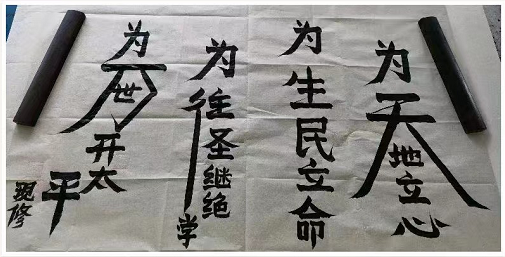 为天地立心
为生民立命
为往圣继绝学
为万世开太平
现修